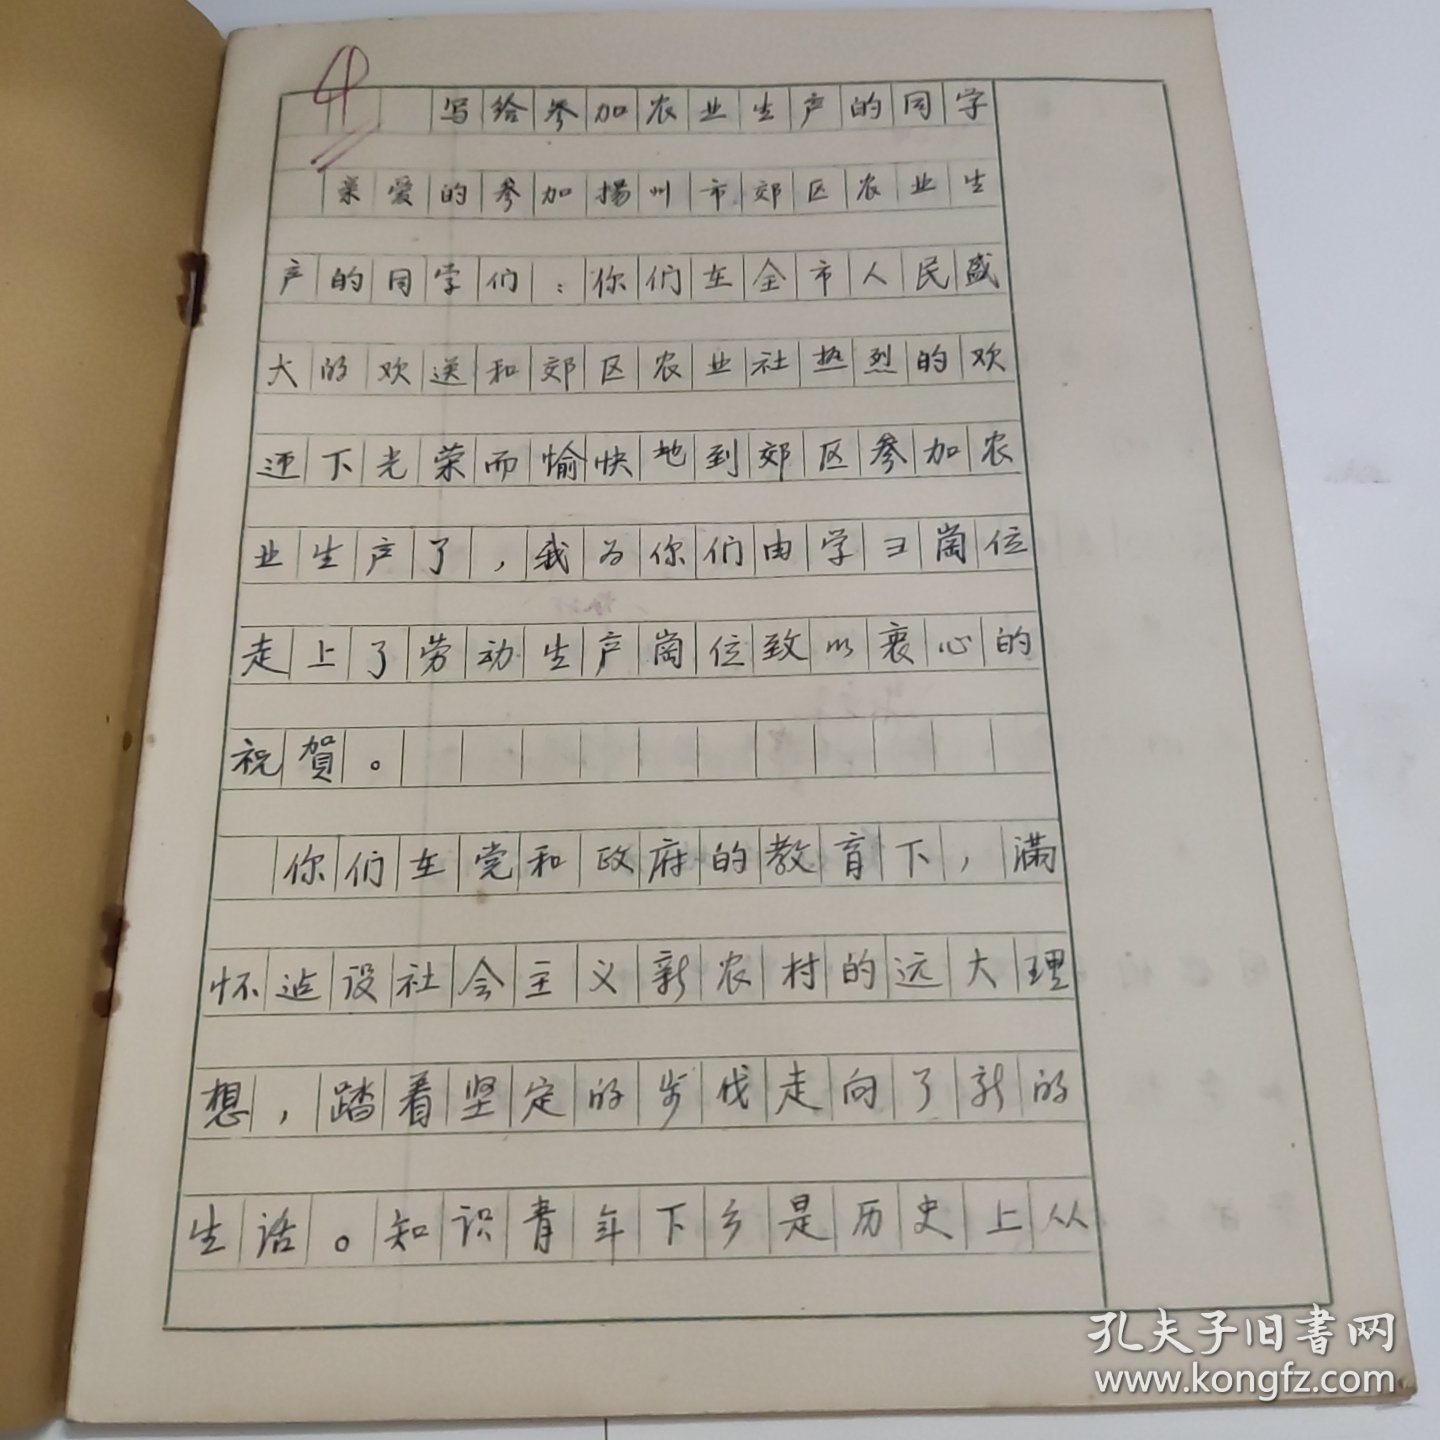 4
写给参加农业生产的同学
亲爱的参加揚州市郊区农业生
产的同学们：你们在全市人民盛
大的欢送和郊区农业社热烈的欢
迊下光荣而愉快地到郊区参加农
业生产了，我为你们由学习崗位
走上了劳动生产崗位致以衷心的
祝賀。
你们在党和政府的教育下，满
怀迠设社会主义新农村的远大理
想，踏着坚定的步伐走向了新的
生活。知识青年下乡是历史上从
孔夫子旧書网
www.kongfz.com